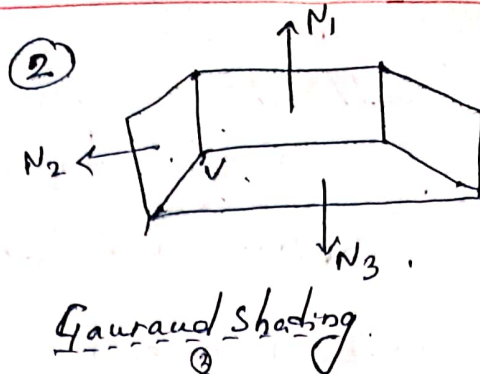 2
N1
N2
V
N3 .
Gauraud Shading.
2